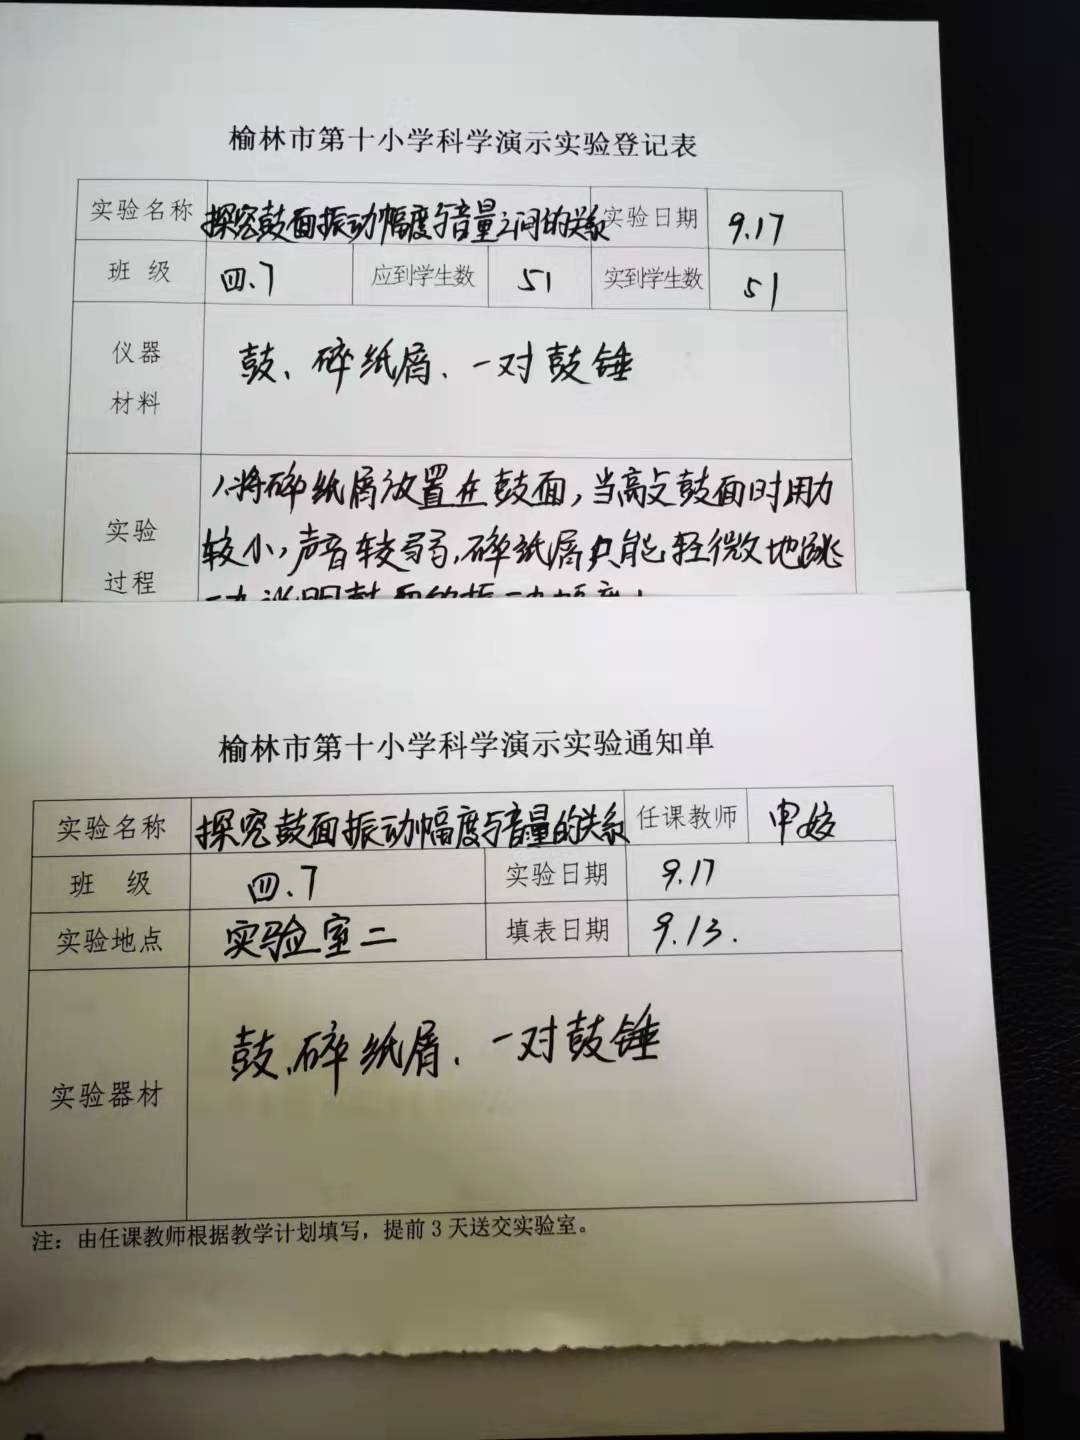 榆林市第十小学科学演示实验登记表
实验名称 探究鼓面振动幅度与音量之间的关系 实验日期 9.17
班 级 四.7 应到学生数 51 实到学生数 51
仪器
材料
鼓、碎纸屑、一对鼓锤
实验
过程
1.将碎纸屑放置在鼓面,当高文鼓面时用力
较小,声音较弱,碎纸屑只能轻微地跳
动,说明鼓面的振动幅度小
榆林市第十小学科学演示实验通知单
实验名称 探究鼓面振动幅度与音量的关系 任课教师 申姣
班 级 四.7 实验日期 9.17
实验地点 实验室二 填表日期 9.13.
实验器材 鼓、碎纸屑、一对鼓锤
注：由任课教师根据教学计划填写，提前3天送交实验室。